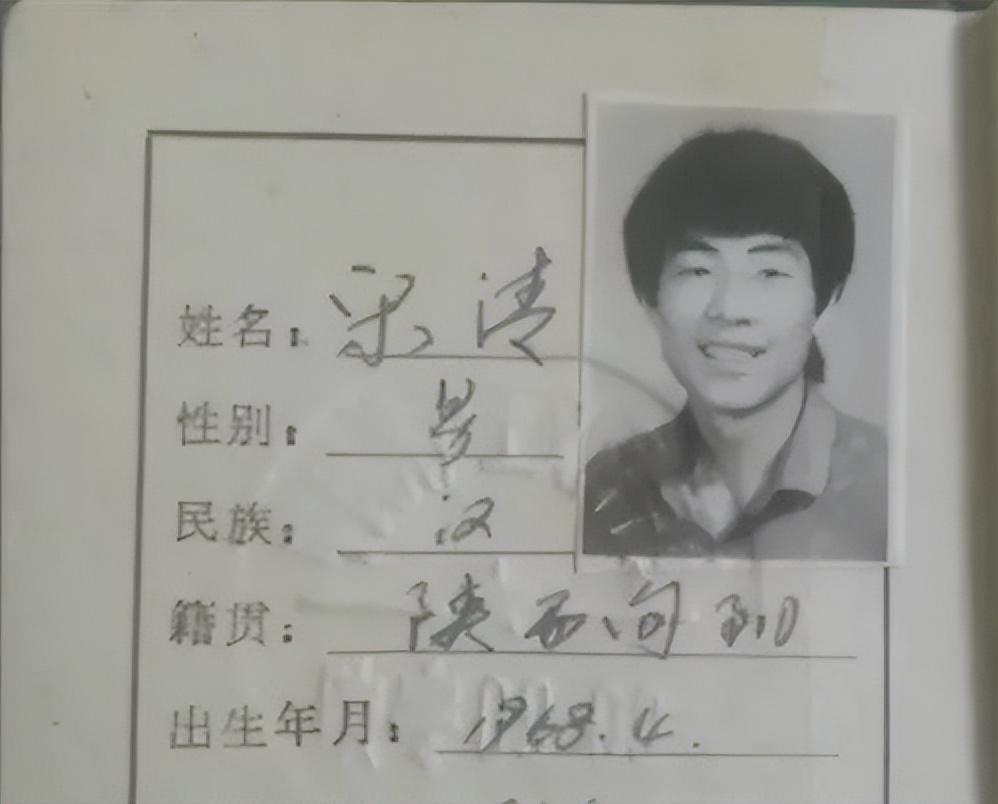 姓名：清
性别：男
民族：汉
籍贯：陕西旬阳
出生年月：1968.4.